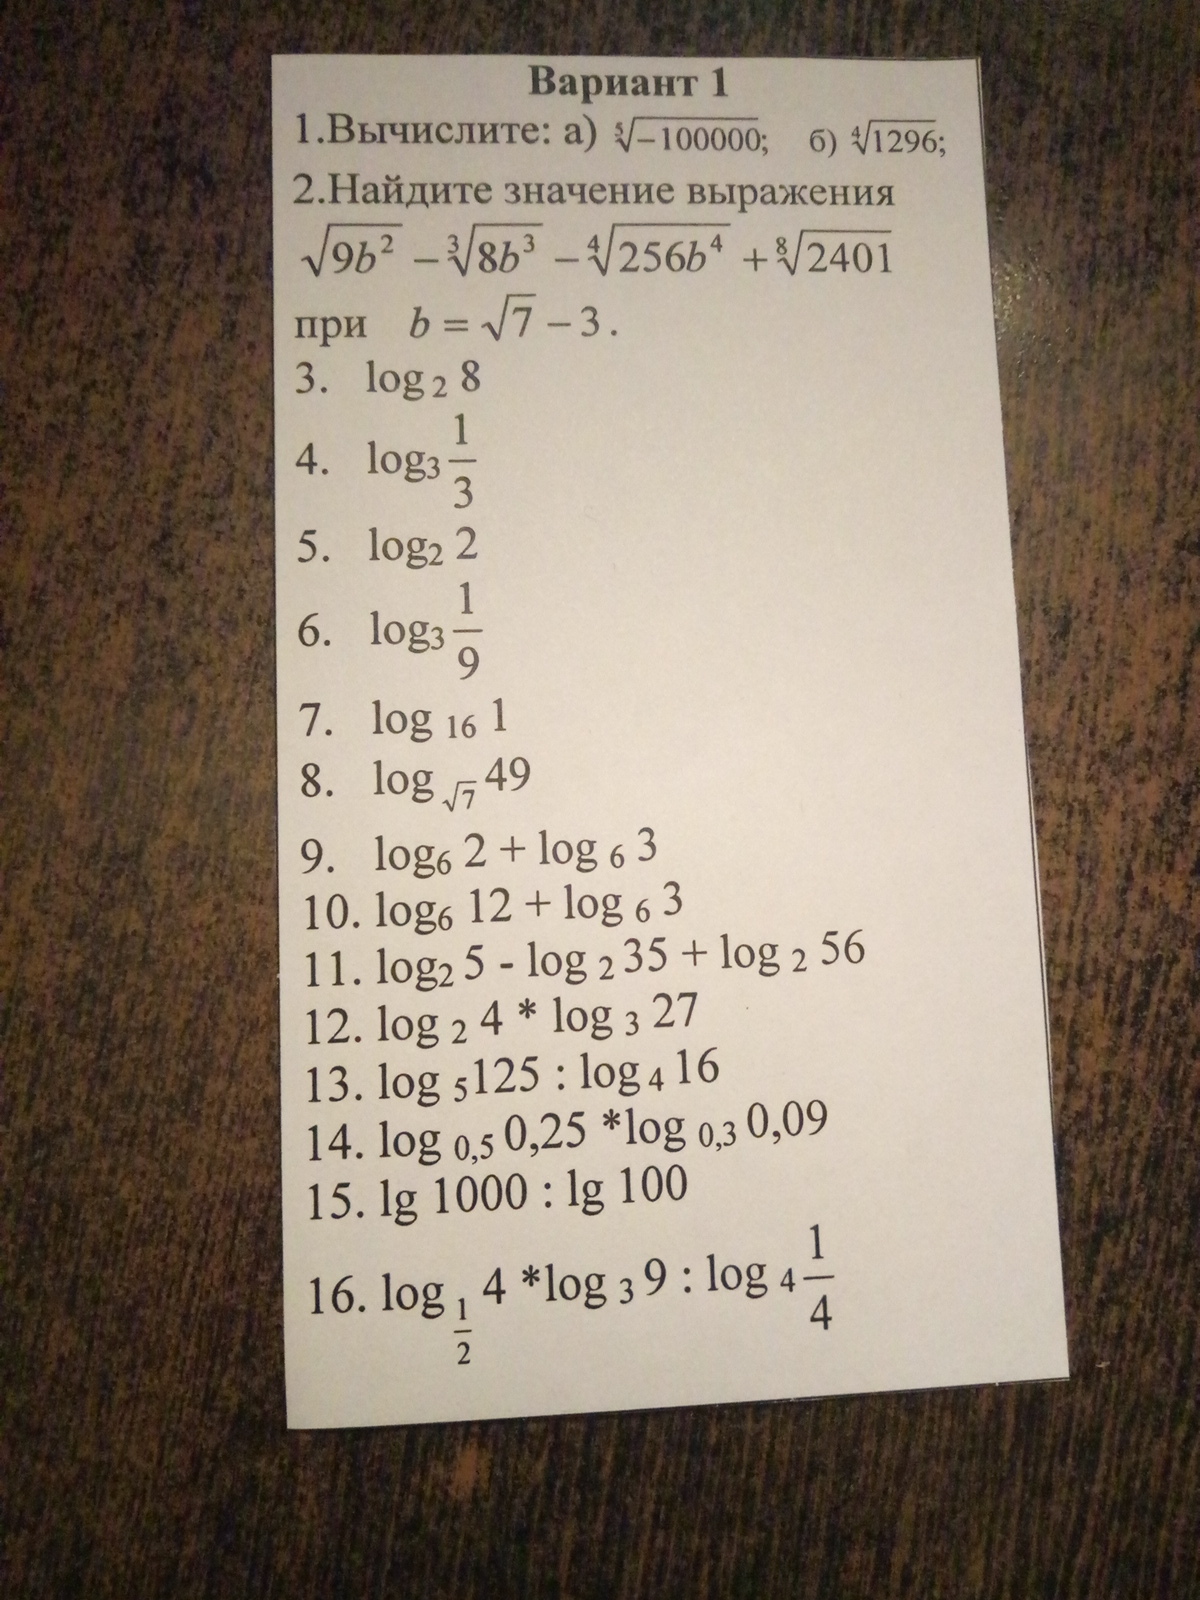 Вариант 1
1.Вычислите: а) ⁵√−100000; б) ⁴√1296;
2.Найдите значение выражения
√9b² − ³√8b³ − ⁴√256b⁴ + ⁸√2401
при b = √7 − 3.
3. log ₂ 8
4. log₃ 1/3
5. log₂ 2
6. log₃ 1/9
7. log ₁₆ 1
8. log _√7 49
9. log₆ 2 + log ₆ 3
10. log₆ 12 + log ₆ 3
11. log₂ 5 - log ₂ 35 + log ₂ 56
12. log ₂ 4 * log ₃ 27
13. log ₅125 : log ₄ 16
14. log _0,5 0,25 *log _0,3 0,09
15. lg 1000 : lg 100
16. log _1/2 4 *log ₃ 9 : log ₄ 1/4